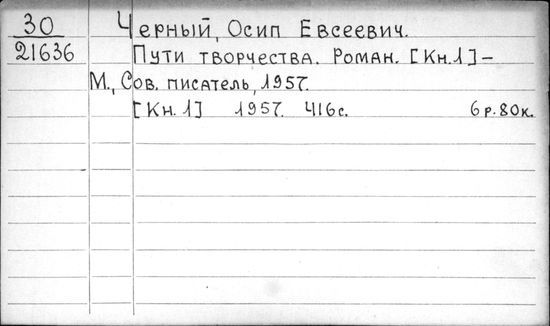 30 Черный, Осип Евсеевич.
21636 Пути творчества. Роман. [Кн.1] –
М., Сов. писатель, 1957.
[Кн. 1] 1957. 416с. 6р.80к.